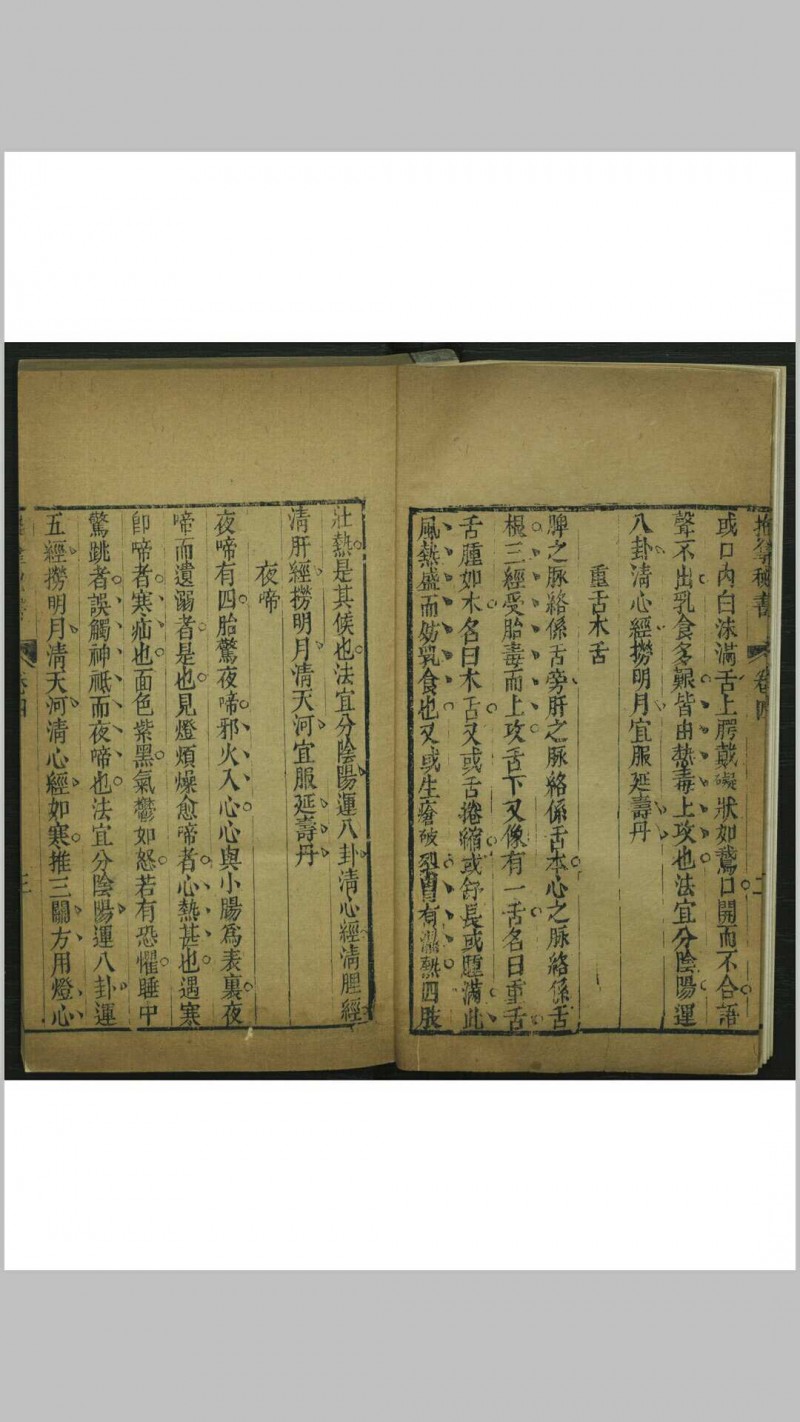 推拿秘書 卷四 二
或口內白沫滿舌上腭戴礙狀如鵞口開而不合語
聲不出乳食多艱皆由熱毒上攻也法宜分陰陽運
八卦清心經撈明月宜服延壽丹
重舌木舌
脾之脉絡係舌旁肝之脉絡係舌本心之脉絡係舌
根三經受胎毒而上攻舌下又像有一舌名曰重舌
舌腫如木名曰木舌又或舌捲縮或舒長或腫滿此
風熱盛而妨乳食也又或生瘡破裂胃有濕熱四肢
壯熱是其候也法宜分陰陽運八卦清心經清脾經
清肝經撈明月清天河宜服延壽丹
夜啼
夜啼有四胎驚夜啼邪火入心心與小腸爲表裏夜
啼而遺溺者是也見燈煩燥愈啼者心熱甚也遇寒
卽啼者寒疝也面色紫黑氣鬱如怒若有恐懼睡中
驚跳者誤觸神祇而夜啼也法宜分陰陽運八卦運
五經撈明月清天河清心經如寒推三關方用燈心
卷四 三